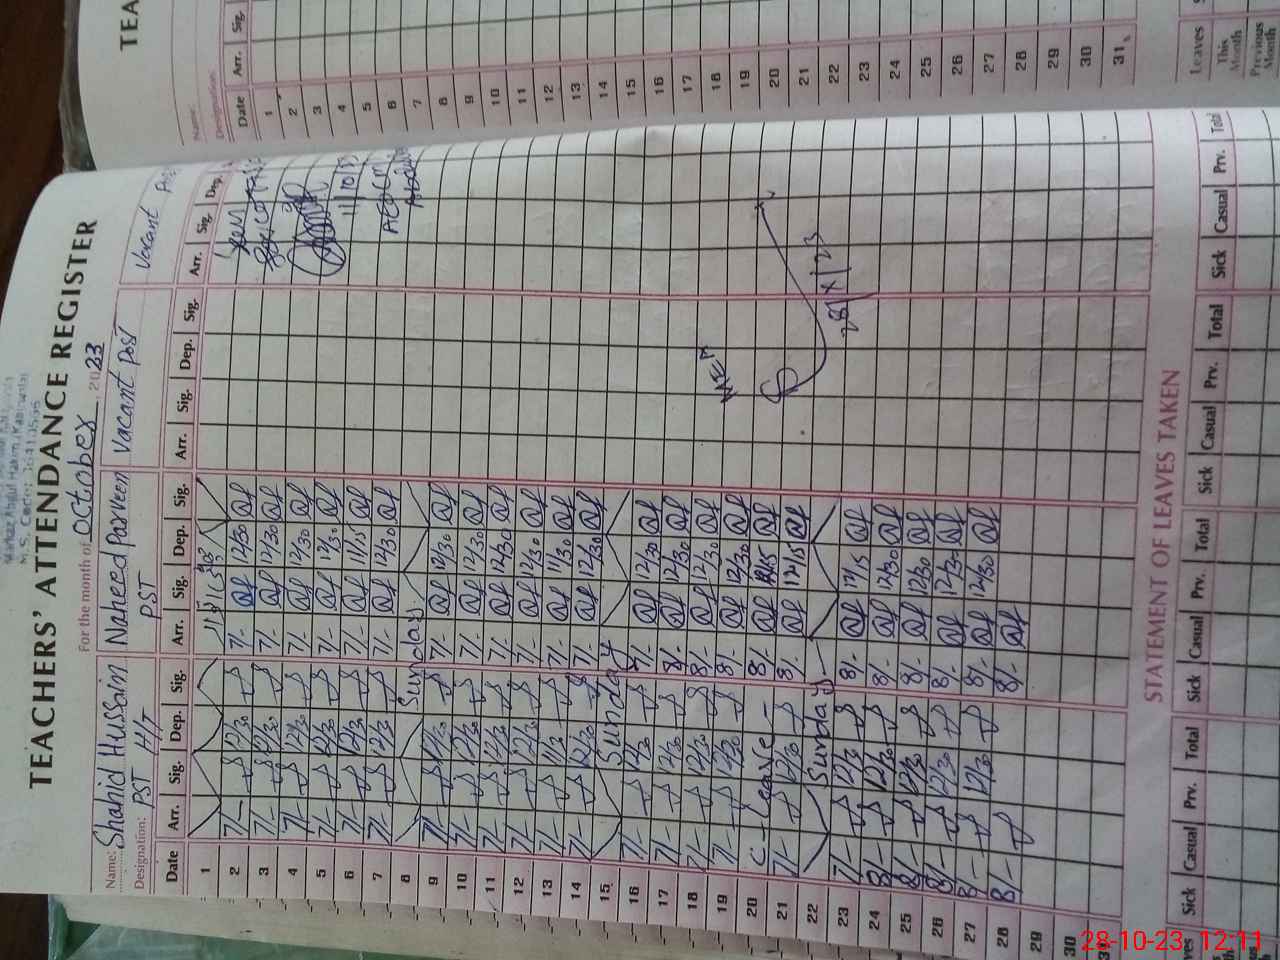 TEACHERS' ATTENDANCE REGISTER
For the month of October 2023
Name: Shahid Hussain Naheed Parveen Vacant Post Vacant
Designation: PST H/T PST
Date Arr. Sig. Dep. Sig. Arr. Sig. Dep. Sig. Arr. Sig. Dep. Sig. Arr. Sig. Dep.
1
2 7/- 12/30 7/- 12/30
3 7/- 12/30 7/- 12/30
4 7/- 12/30 7/- 12/30
5 7/- 12/30 7/- 12/30
6 7/- 12/3 7/- 11/15
7 7/- 12/3 7/- 12/30
8 Sunday
9 7/- 12/30 7/- 12/30
10 7/- 12/30 7/- 12/30
11 7/- 12/30 7/- 12/30
12 7/- 12/30 7/- 12/30
13 7/- 11/3 7/- 11/30
14 7/- 12/30 7/- 12/30
15 Sunday
16 7/- 12/30 8/- 12/30
17 7/- 12/30 8/- 12/30
18 7/- 12/30 8/- 12/30
19 7/- 12/30 8/- 12/30
20 C-leave- 8/-
21 7/- 12/30 8/- 12/15
22 Sunday
23 7/- 12/3 8/- 12/15
24 8/- 12/30 8/- 12/30
25 8/- 12/30 8/- 12/30
26 8/- 12/30 8/- 12/30
27 8/- 12/30 8/- 12/30
28 8/- 8/-
29
30
31
28/X/23
STATEMENT OF LEAVES TAKEN
Sick Casual Prv. Total Sick Casual Prv. Total Sick Casual Prv. Total Sick Casual Prv. Total
TEA
Name:
Designation:
Date Arr. Sig.
1
2
3
4
5
6
7
8
9
10
11
12
13
14
15
16
17
18
19
20
21
22
23
24
25
26
27
28
29
30
31
Leaves
This Month
Previous Month
28-10-23 12:11